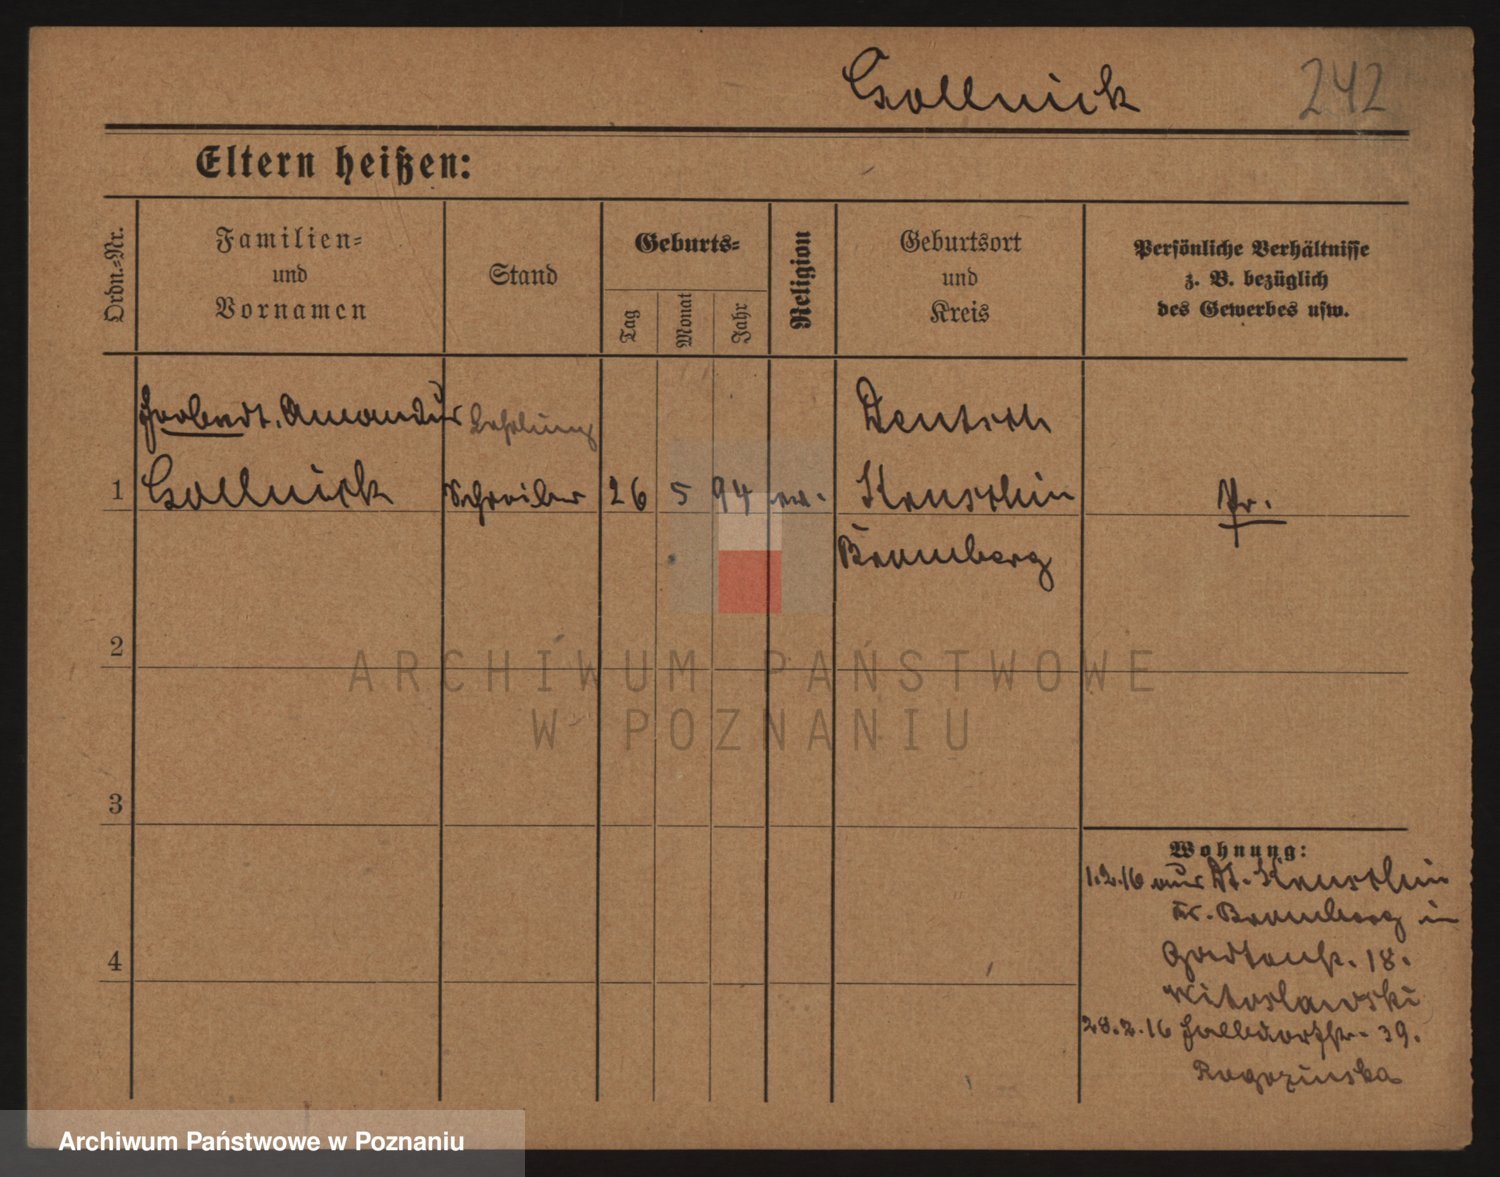 Gollnick 242
Eltern heißen:
Ordn.-Nr.
Familien-
und
Vornamen
Stand
Geburts-
Tag
Monat
Jahr
Religion
Geburtsort
und
Kreis
Persönliche Verhältnisse
z. B. bezüglich
des Gewerbes usw.
Amandus
Deutsch
1 Gollnick Schreiber 26 5 94 ev. Kruschin Pr.
Bromberg
2
ARCHIWUM PAŃSTWOWE
W POZNANIU
3
Wohnung:
1.2.16 aus Dt. Kruschin
Kr. Bromberg in
Gartenstr. 18.
Witoslawski
4
28.2.16 Halbdorfstr. 39.
Rogozinska
Archiwum Państwowe w Poznaniu